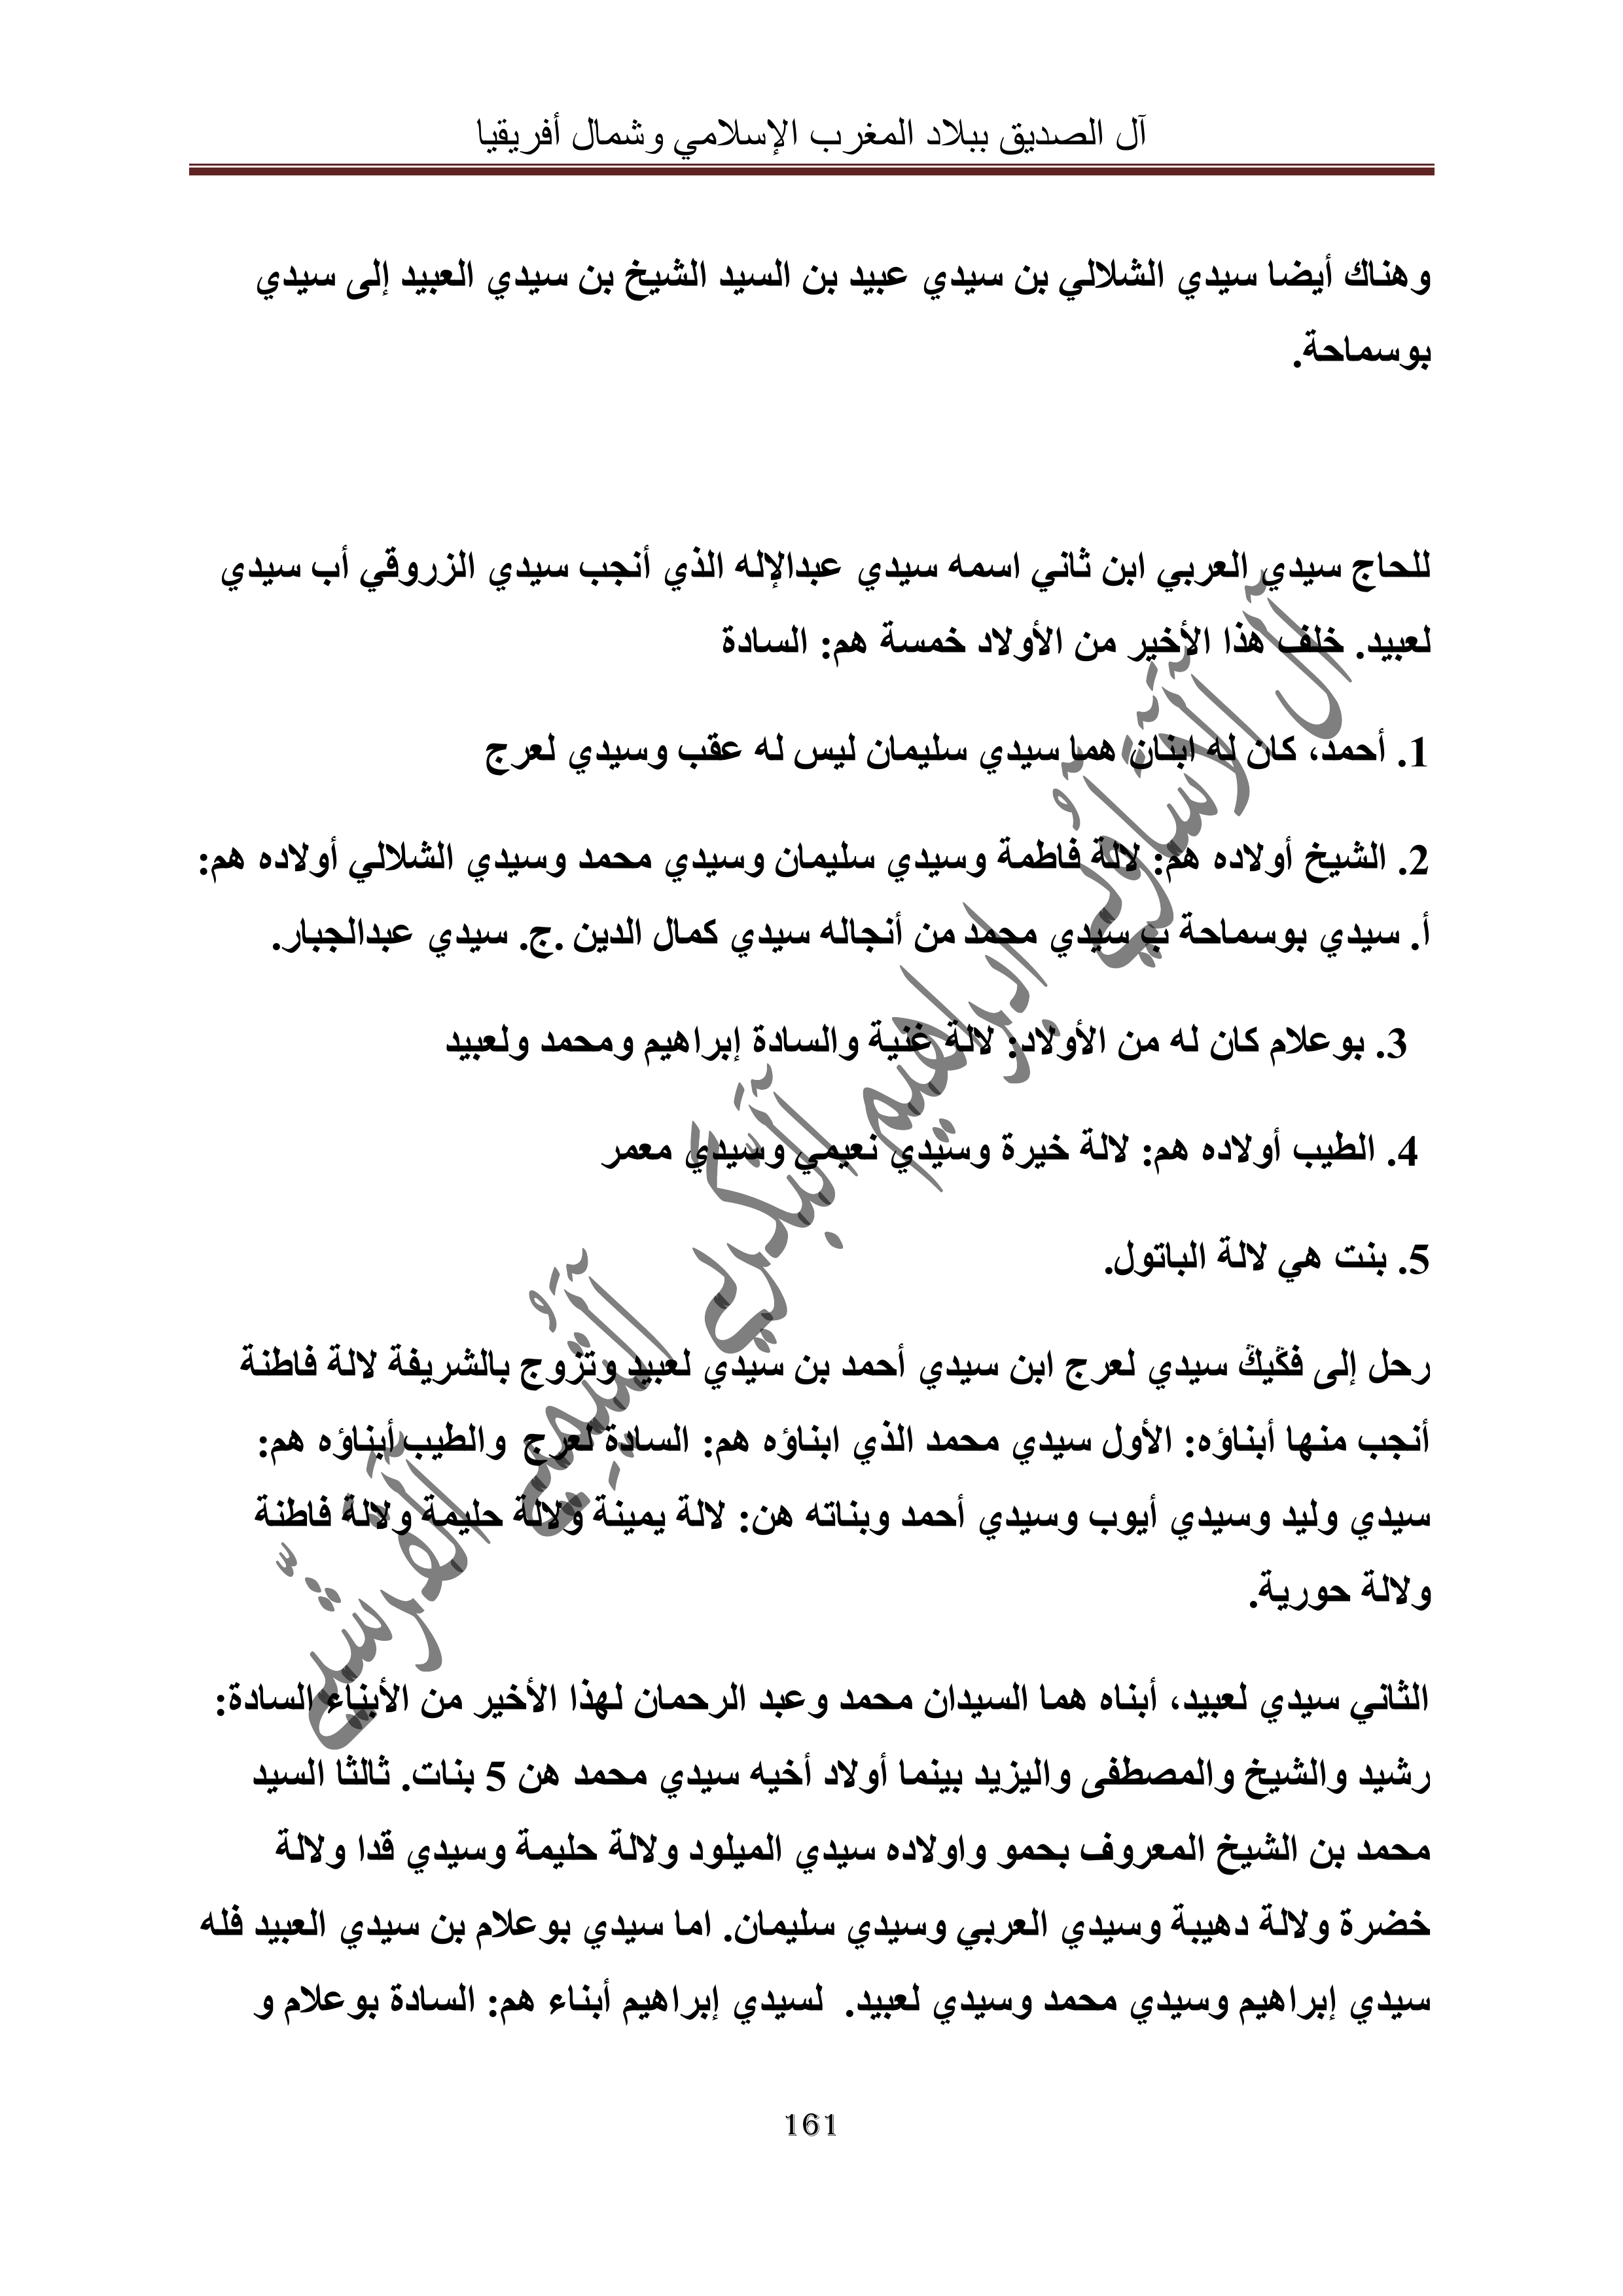 آل الصديق ببلاد المغرب الإسلامي وشمال أفريقيا
وهناك أيضا سيدي الشلالي بن سيدي عبيد بن السيد الشيخ بن سيدي العبيد إلى سيدي
بوسماحة.
للحاج سيدي العربي ابن ثاني اسمه سيدي عبدالإله الذي أنجب سيدي الزروقي أب سيدي
لعبيد. خلف هذا الأخير من الأولاد خمسة هم: السادة
1. أحمد، كان له ابنان هما سيدي سليمان ليس له عقب وسيدي لعرج
2. الشيخ أولاده هم: لالة فاطمة وسيدي سليمان وسيدي محمد وسيدي الشلالي أولاده هم:
أ. سيدي بوسماحة ب سيدي محمد من أنجاله سيدي كمال الدين .ج. سيدي عبدالجبار.
3. بوعلام كان له من الأولاد: لالة غنية والسادة إبراهيم ومحمد ولعبيد
4. الطيب أولاده هم: لالة خيرة وسيدي نعيمي وسيدي معمر
5. بنت هي لالة الباتول.
رحل إلى فڭيڭ سيدي لعرج ابن سيدي أحمد بن سيدي لعبيد وتزوج بالشريفة لالة فاطنة
أنجب منها أبناؤه: الأول سيدي محمد الذي ابناؤه هم: السادة لعرج والطيب أبناؤه هم:
سيدي وليد وسيدي أيوب وسيدي أحمد وبناته هن: لالة يمينة ولالة حليمة ولالة فاطنة
ولالة حورية.
الثاني سيدي لعبيد، أبناه هما السيدان محمد وعبد الرحمان لهذا الأخير من الأبناء السادة:
رشيد والشيخ والمصطفى واليزيد بينما أولاد أخيه سيدي محمد هن 5 بنات. ثالثا السيد
محمد بن الشيخ المعروف بحمو واولاده سيدي الميلود ولالة حليمة وسيدي قدا ولالة
خضرة ولالة دهيبة وسيدي العربي وسيدي سليمان. اما سيدي بوعلام بن سيدي العبيد فله
سيدي إبراهيم وسيدي محمد وسيدي لعبيد. لسيدي إبراهيم أبناء هم: السادة بوعلام و
161